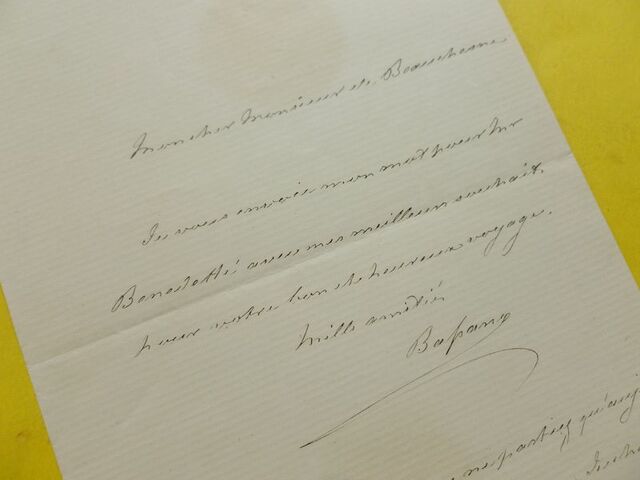 Mon cher Monsieur de Beauchesne
Je vous envoie mon mot pour Mr
Benedetti avec mes meilleurs souhaits
pour votre bon et heureux voyage.
Mille amitiés
Bapang
ne partiez qu'auj